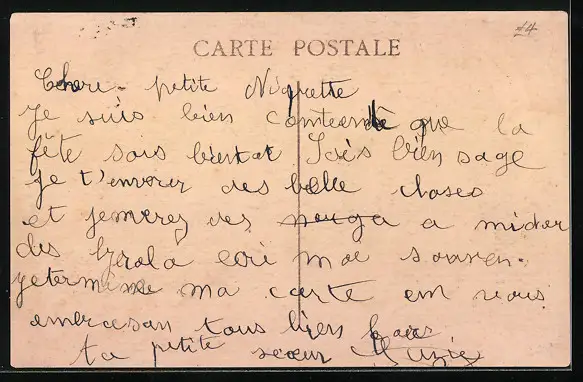 #4
CARTE POSTALE
Chere petite Niquette
Je suis bien contente que la
fête sois bientot Sois bien sage
Je t'enverer des belle choses
et jemerez des a mider
des ecri moe souven.
jetermine ma carte em vous
embrcesan tous bien fors
ta petite sœur